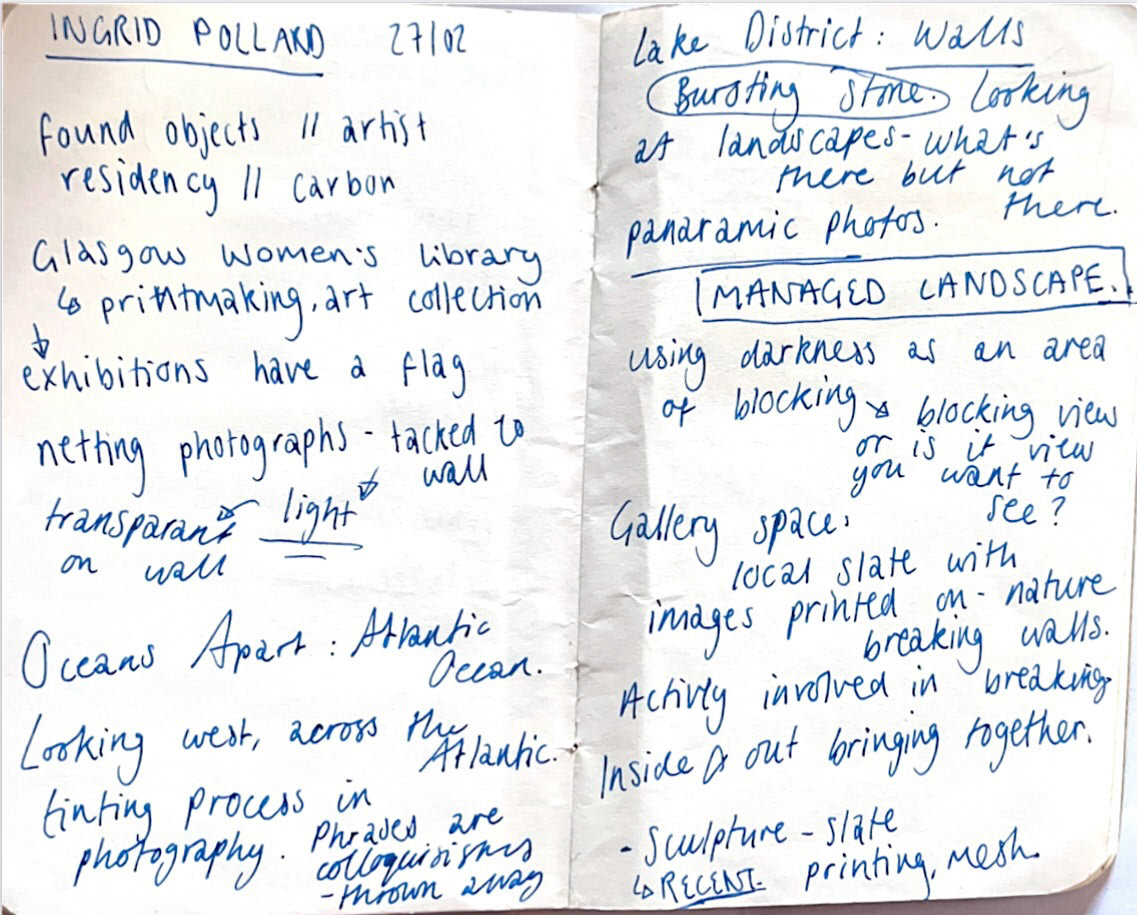 INGRID POLLARD 27/02
found objects // artist
residency // carbon
Glasgow Women's library
↳ printmaking, art collection
↓
exhibitions have a flag
netting photographs - tacked to
wall
transparant ↙ light ↙
on wall
Oceans Apart : Atlantic
Ocean.
Looking west, across the
Atlantic.
tinting process in
photography. Phrases are
colloquisisms
- thrown away
Lake District : Walls
Bursting Stone. Looking
at landscapes - what's
there but not
there.
panaramic photos.
MANAGED LANDSCAPE.
using darkness as an area
of blocking ↘ blocking view
or is it view
you want to
see?
Gallery space:
local slate with
images printed on - nature
breaking walls.
Activly involved in breaking
Inside & out bringing together.
- Sculpture - slate
↳ RECENT printing, mesh.